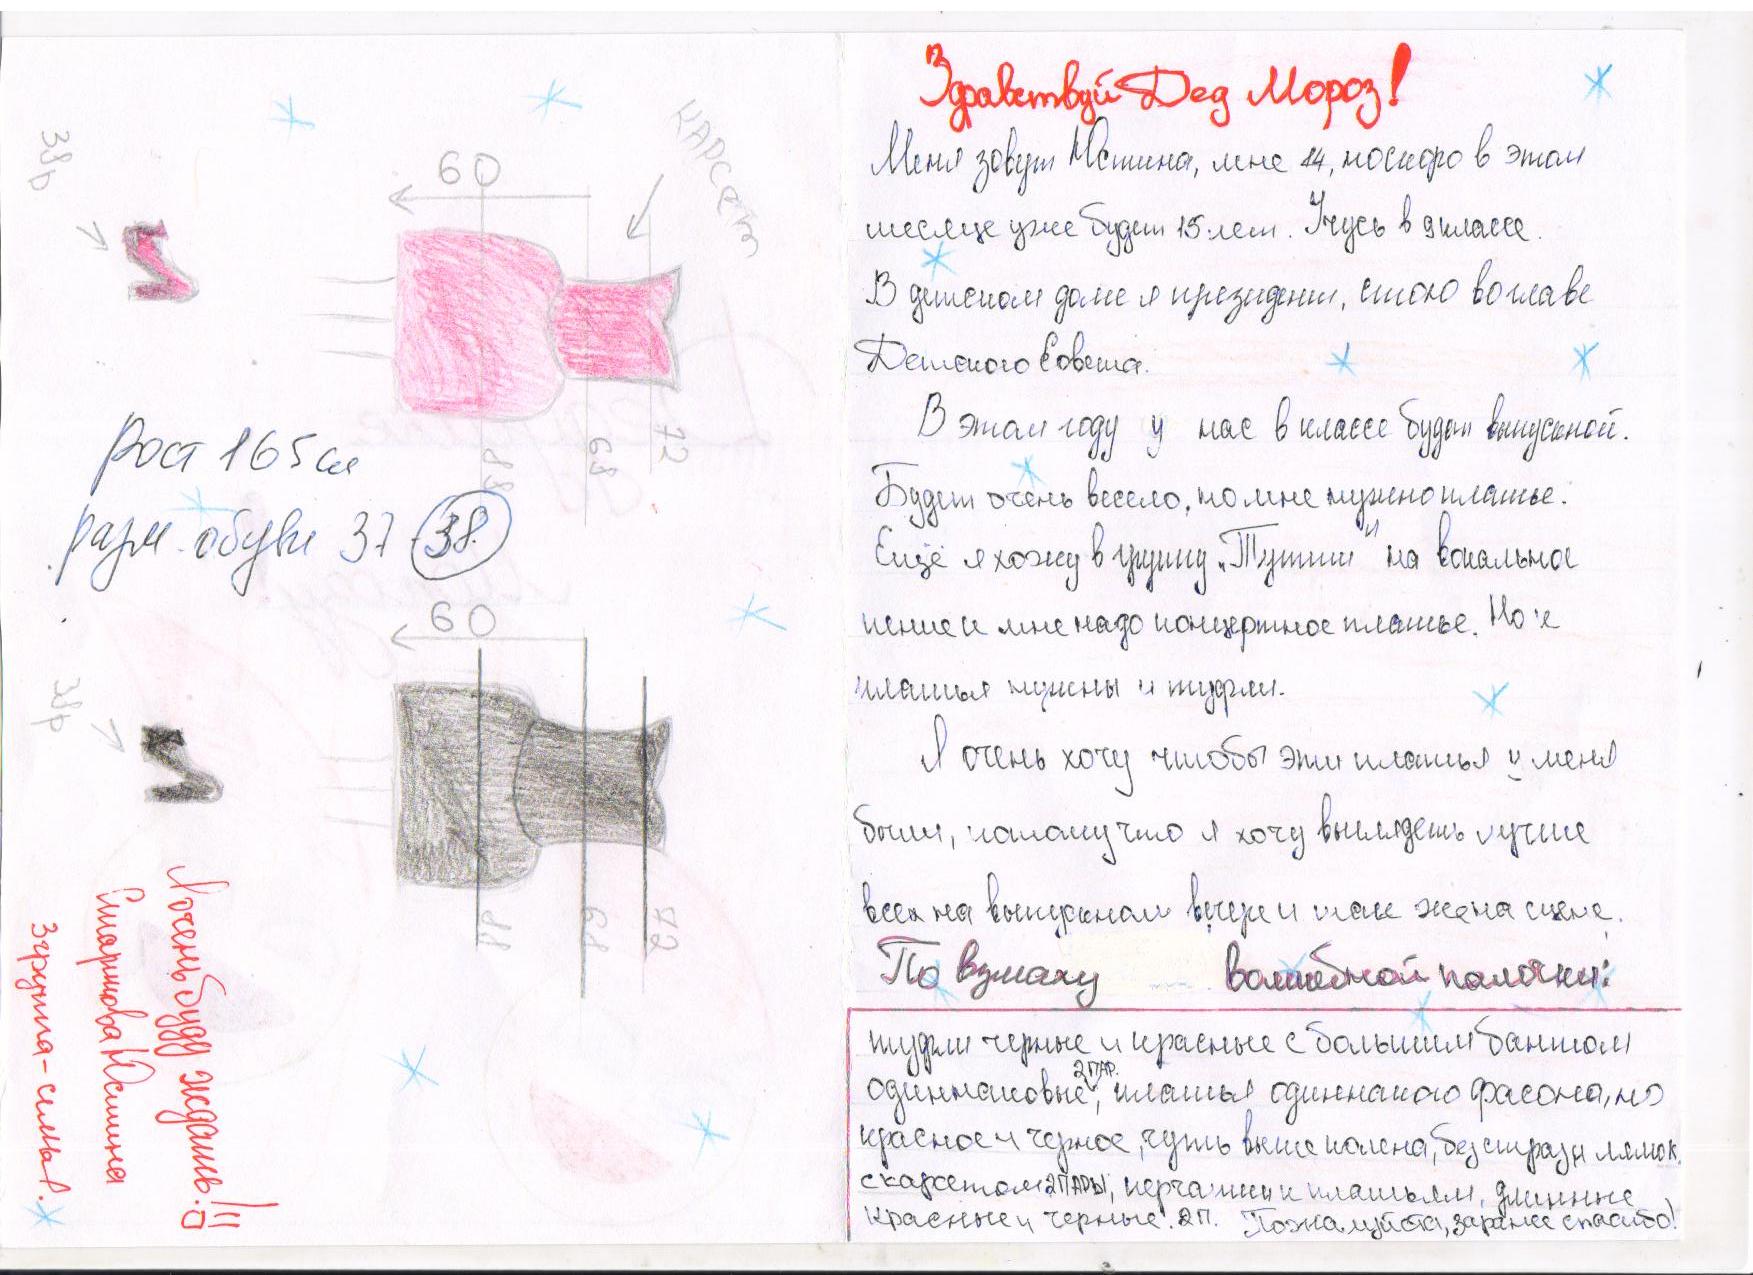 Здравствуй Дед Мороз!
Меня зовут Юстина, мне 14, но скоро в этом
месяце уже будет 15 лет. Учусь в 9 классе.
В детском доме я президент, стою во главе
Детского Совета.
В этом году у нас в классе будет выпускной.
Будет очень весело, но мне нужно платье.
Ещё я хожу в группу "Тутти" на вокальное
пение и мне надо концертное платье. Но к
платья нужны и туфли.
Я очень хочу чтобы эти платья у меня
были, потому что я хочу выглядеть лучше
всех на выпускном вечере и так же на сцене.
По взмаху волшебной палочки:
туфли черные и красные с большим бантом
одиннаковые 2 ПАР., платья одиннакого фасона, но
красное и черное, чуть выше колена, без страз и лямок,
с карсетом 2 ПАРЫ, перчатки к платьям, длинные
красные и черные. 2 п. Пожалуйста, заранее спасибо!
КАРСЕТ
60
38р
88
68
72
Рост 165 см
разм. обуви 37 - 38
60
38р
88
68
72
Я очень буду ждать!!!
Юстина
3 группа - семья.